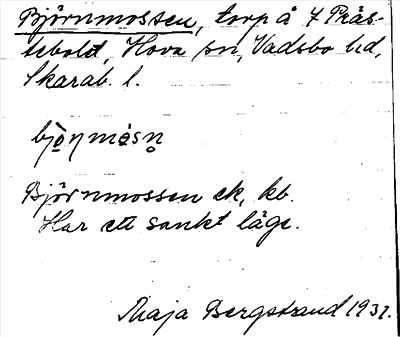 Björnmossen, torp å 7 Präs-
tebold, Hova sn, Vadsbo hd,
Skarab. l.
Björnmossen ek, kb.
Har ett sankt läge.
Maja Bergstrand 1931.